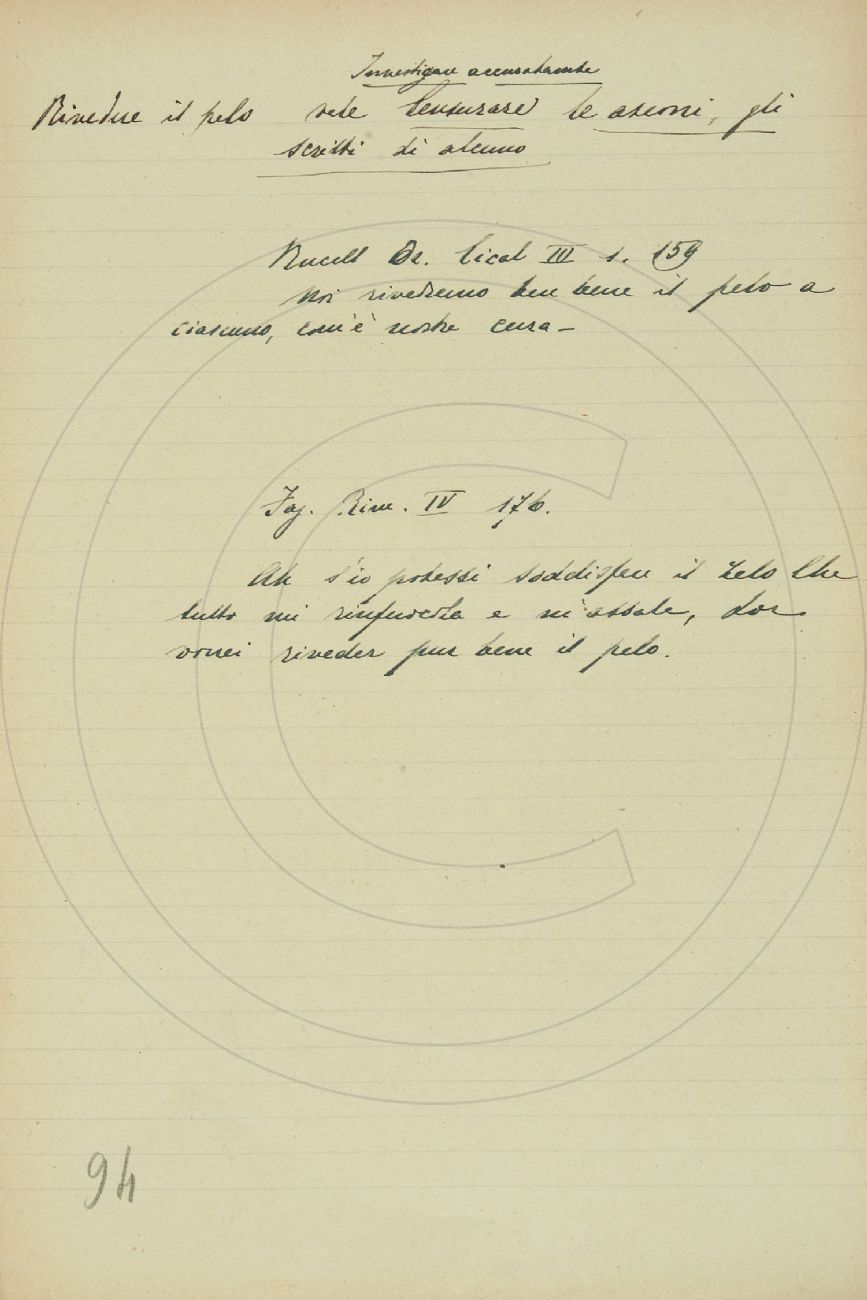 Investigare accuratamente
Rivedere il pelo vale Censurare le azioni, gli
scritti di alcuno
Rucell Or. Cical III 1. 159
Noi rivedremo ben bene il pelo a
ciascuno, com'è nostra cura —
Fag. Rim. IV 176.
Ah s'io potessi soddisfare il zelo Che
tutto mi rinfuocola e m'assale, Lor
vorrei riveder pur bene il pelo.
94